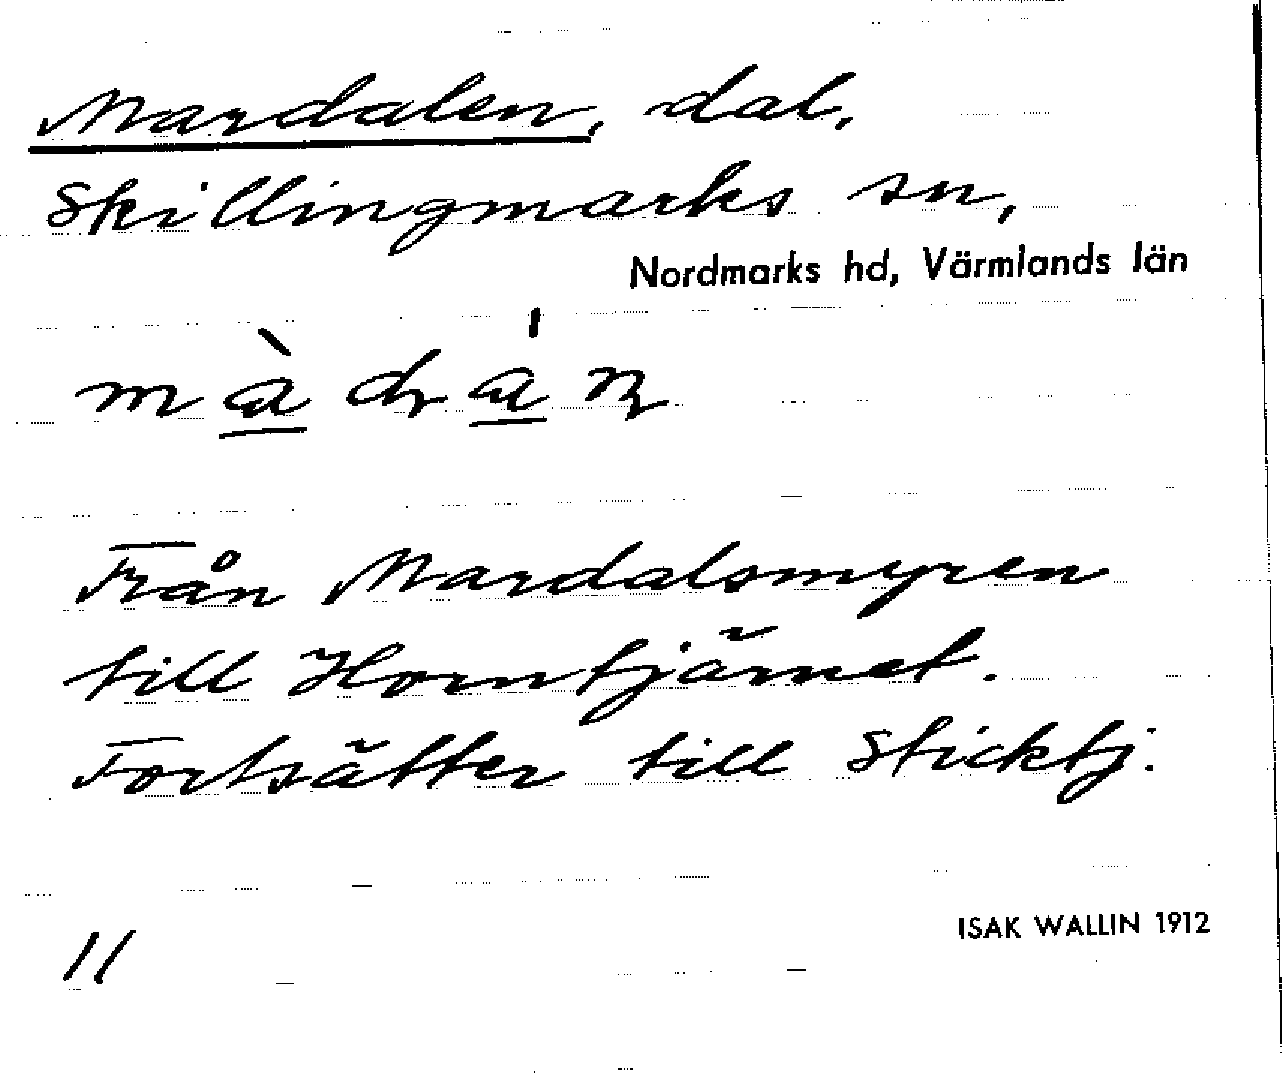 Mardalen, dal,
Skillingmarks sn,
Nordmarks hd, Värmlands län
Från Mardalsmyren
till Horntjärnet.
Fortsätter till Sticktj.
ISAK WALLIN 1912
11